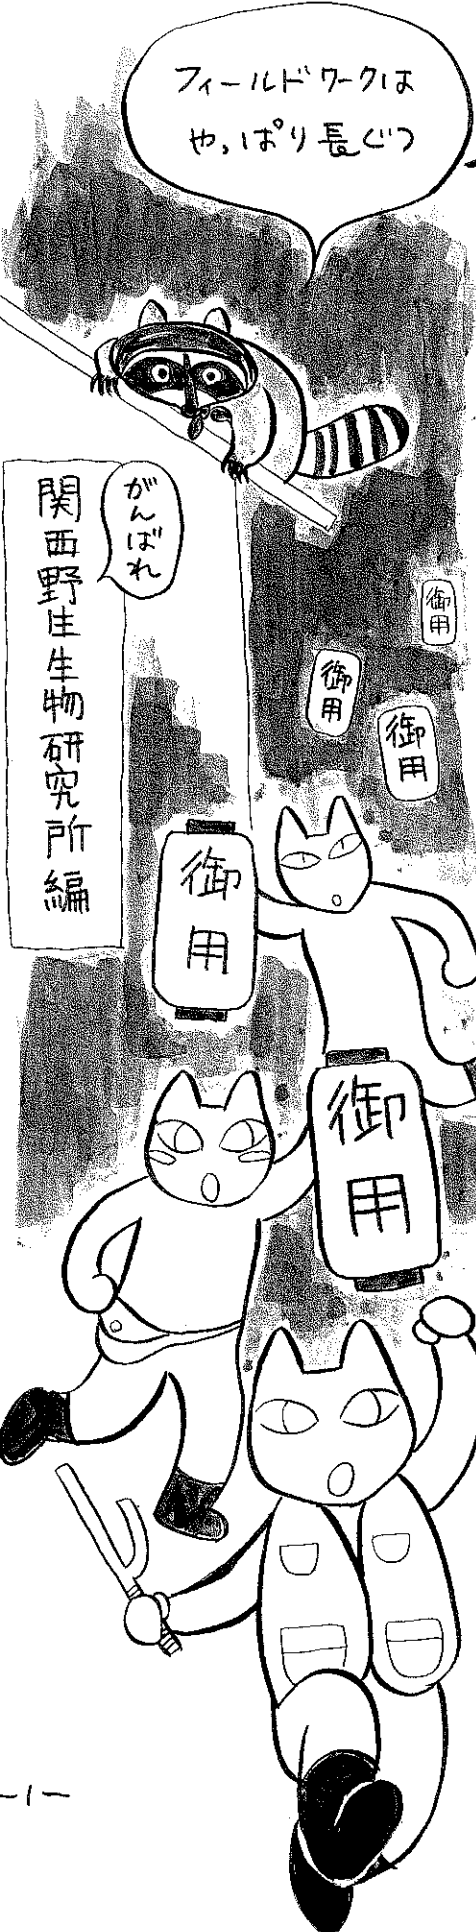 フィールドワークは
やっぱり長ぐつ
がんばれ
関西野生生物研究所編
御用
御用
御用
御用
御用
-1-